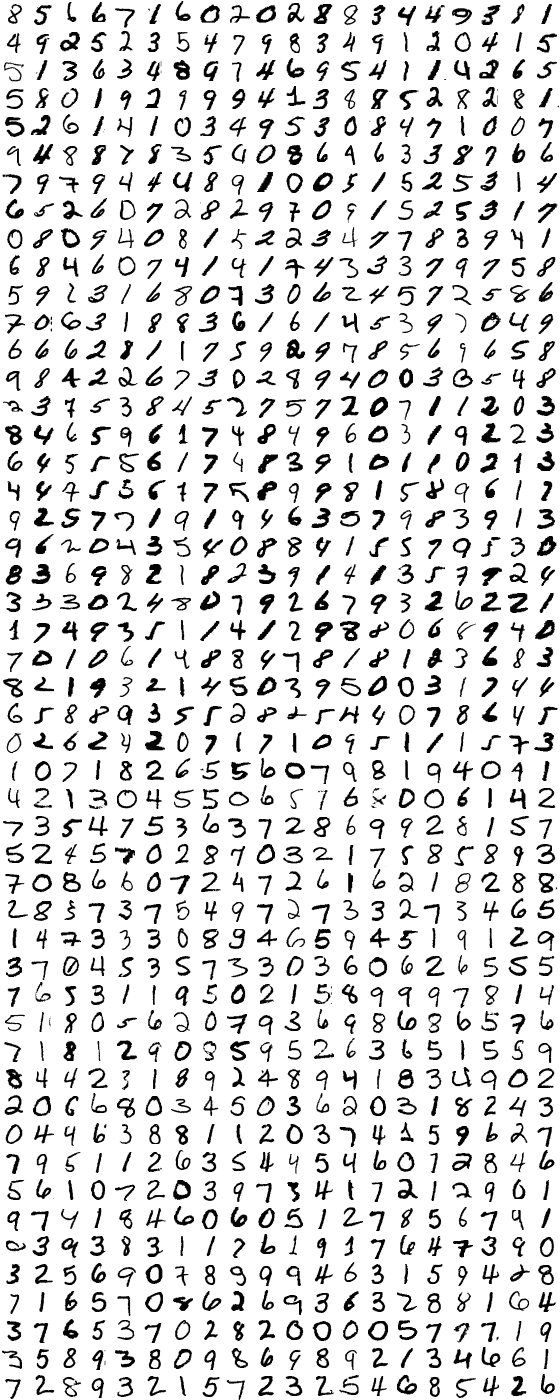 8 5 6 6 7 1 6 0 2 0 2 8 8 3 4 4 9 3 8 1
4 9 2 5 2 3 5 4 7 9 8 3 4 9 1 2 0 4 1 5
5 1 3 6 3 4 8 9 7 4 6 9 5 4 1 1 4 2 6 5
5 8 0 1 9 2 9 9 9 4 1 3 8 8 5 2 8 2 8 1
5 2 6 1 4 1 0 3 4 9 5 3 0 8 4 7 1 0 0 7
9 4 8 8 7 8 3 5 4 0 8 6 9 6 3 3 8 7 6 6
7 9 7 9 4 4 4 8 9 1 0 0 5 1 5 2 5 3 1 4
6 5 2 6 0 7 2 8 2 9 7 0 9 1 5 2 5 3 1 7
0 8 0 9 4 0 8 1 5 2 2 3 4 7 7 8 3 9 4 1
6 8 4 6 0 7 4 1 4 1 7 4 3 3 3 7 9 7 5 8
5 9 2 3 1 6 8 0 7 3 0 6 2 4 5 7 2 5 8 6
7 0 6 3 1 8 8 3 6 1 6 1 4 5 3 9 7 0 4 9
6 6 6 2 8 1 1 7 5 9 2 9 7 8 5 6 9 6 5 8
9 8 4 2 2 6 7 3 0 2 8 9 4 0 0 3 3 5 4 8
2 3 7 5 3 8 4 5 2 7 5 7 2 0 7 1 1 2 0 3
8 4 6 5 9 6 1 7 4 8 4 9 6 0 3 1 9 2 2 3
6 4 5 5 5 6 1 7 4 8 3 9 1 0 1 1 0 2 1 3
4 4 7 5 3 6 1 7 5 8 9 9 8 1 5 8 9 6 1 7
9 2 5 7 7 1 9 1 9 4 6 3 5 7 9 8 3 9 1 3
9 6 2 0 4 3 5 4 0 8 8 4 1 5 5 7 9 5 3 0
8 3 6 9 8 2 1 8 2 3 9 1 4 1 3 5 7 9 2 4
3 3 3 0 2 4 8 0 7 9 2 6 7 9 3 2 6 2 2 1
1 7 4 9 3 5 1 1 4 1 2 9 8 8 0 6 8 9 4 0
7 0 1 0 6 1 4 8 8 4 7 8 1 8 1 2 3 6 8 3
8 2 1 9 3 2 1 4 5 0 3 9 5 0 0 3 1 7 4 4
6 5 8 8 9 3 5 5 2 8 2 5 4 4 0 7 8 6 4 5
0 2 6 2 4 2 0 7 1 7 1 0 9 5 1 1 1 5 7 3
1 0 7 1 8 2 6 5 5 6 0 7 9 8 1 9 4 0 9 1
4 2 1 3 0 4 5 5 0 6 5 7 6 8 0 0 6 1 4 2
7 3 5 4 7 5 3 6 3 7 2 8 6 9 9 2 8 1 5 7
5 2 4 5 7 0 2 8 7 0 3 2 1 7 5 8 5 8 9 3
7 0 8 6 6 0 7 2 4 7 2 6 1 6 2 1 8 2 8 8
2 8 3 7 3 7 5 4 9 7 2 7 3 3 2 7 3 4 6 5
1 4 7 3 3 3 0 8 9 4 6 5 9 4 5 1 9 1 2 9
3 7 0 4 5 3 5 7 3 3 0 3 6 0 6 2 6 5 5 5
7 6 5 3 1 1 9 5 0 2 1 5 8 9 9 9 7 8 1 4
5 1 8 0 5 6 2 0 7 9 3 6 9 8 6 8 6 5 7 6
7 1 8 1 2 9 0 8 5 9 5 2 6 3 6 5 1 5 5 9
8 4 4 2 3 1 8 9 2 4 8 9 4 1 8 3 4 9 0 2
2 0 6 6 8 0 3 4 5 0 3 6 2 0 3 1 8 2 4 3
0 4 4 6 3 8 8 1 1 2 0 3 7 4 1 5 9 6 2 7
7 9 5 1 1 2 6 3 5 4 4 5 4 6 0 7 2 8 4 6
5 6 1 0 7 2 0 3 9 7 3 4 1 7 2 1 2 9 0 1
9 7 4 1 8 4 6 0 6 0 5 1 2 7 8 5 6 7 9 1
2 3 9 3 8 3 1 1 7 6 1 9 1 7 6 4 7 3 9 0
3 2 5 6 9 0 7 8 9 9 9 4 6 3 1 5 9 4 2 8
7 1 6 5 7 0 8 6 2 6 9 3 6 3 2 8 8 1 6 4
3 7 6 5 3 7 0 2 8 2 0 0 0 0 5 7 7 7 1 9
3 5 8 9 3 8 0 9 8 6 9 8 9 2 1 3 4 6 6 1
7 2 8 9 3 2 1 5 7 2 3 2 5 4 6 8 5 4 2 6